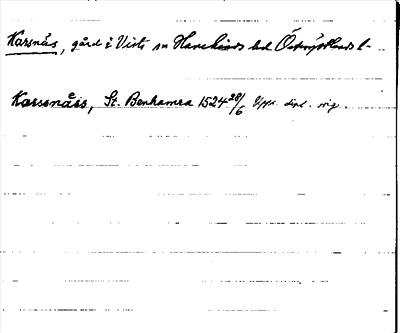 Karsnås, gård i Vists sn Hanekinds hd Östergötlands l.
Karssnåss, St. Benhamra 1524 20/6 Uppl. dipl. orig.